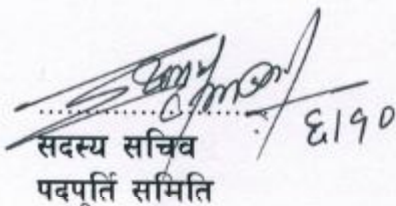 ६/१०
सदस्य सचिव
पदपूर्ति समिति